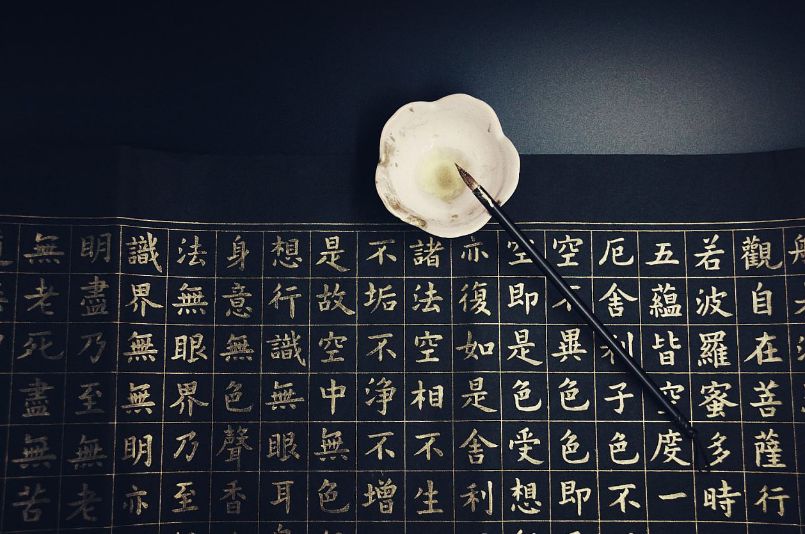 觀自在菩薩行
若波羅蜜多時
五蘊皆空度一
厄舍利子色不
空不異色色即
空即是色受想
亦復如是舍利
諸法空相不生
不垢不淨不增
是故空中無色
想行識無眼耳
身意無色聲香
法無眼界乃至
識界無無明亦
明盡乃至無老
無老死盡無苦